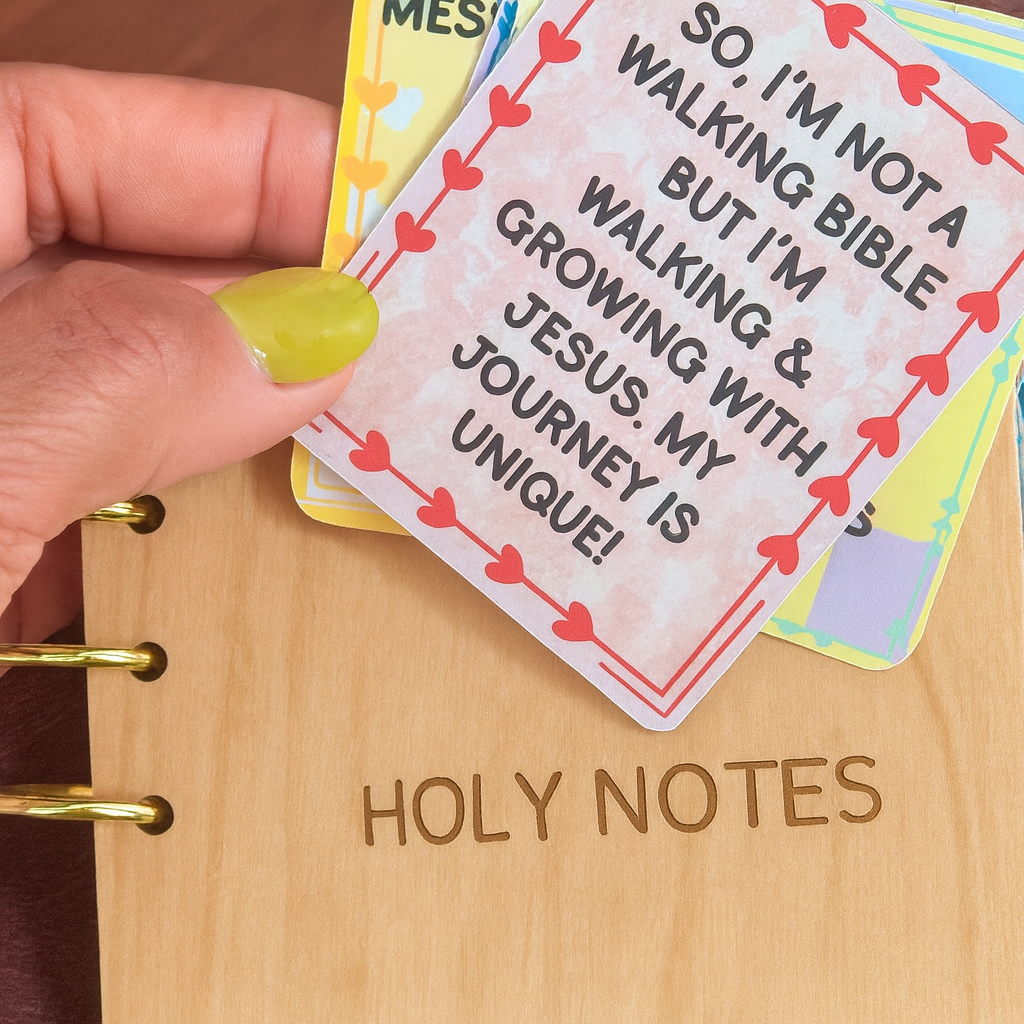 MES
SO, I'M NOT A
WALKING BIBLE
BUT I'M
WALKING &
GROWING WITH
JESUS. MY
JOURNEY IS
UNIQUE!
S
HOLY NOTES